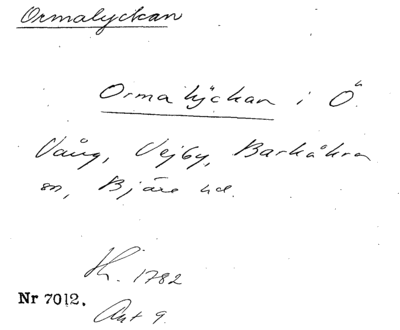 Ormalyckan
Ormalyckan i Ö.
Vång, Vejby, Barkåkra
sn, Bjäre hd.
Hi. 1782
Nr 7012.
Akt 9.